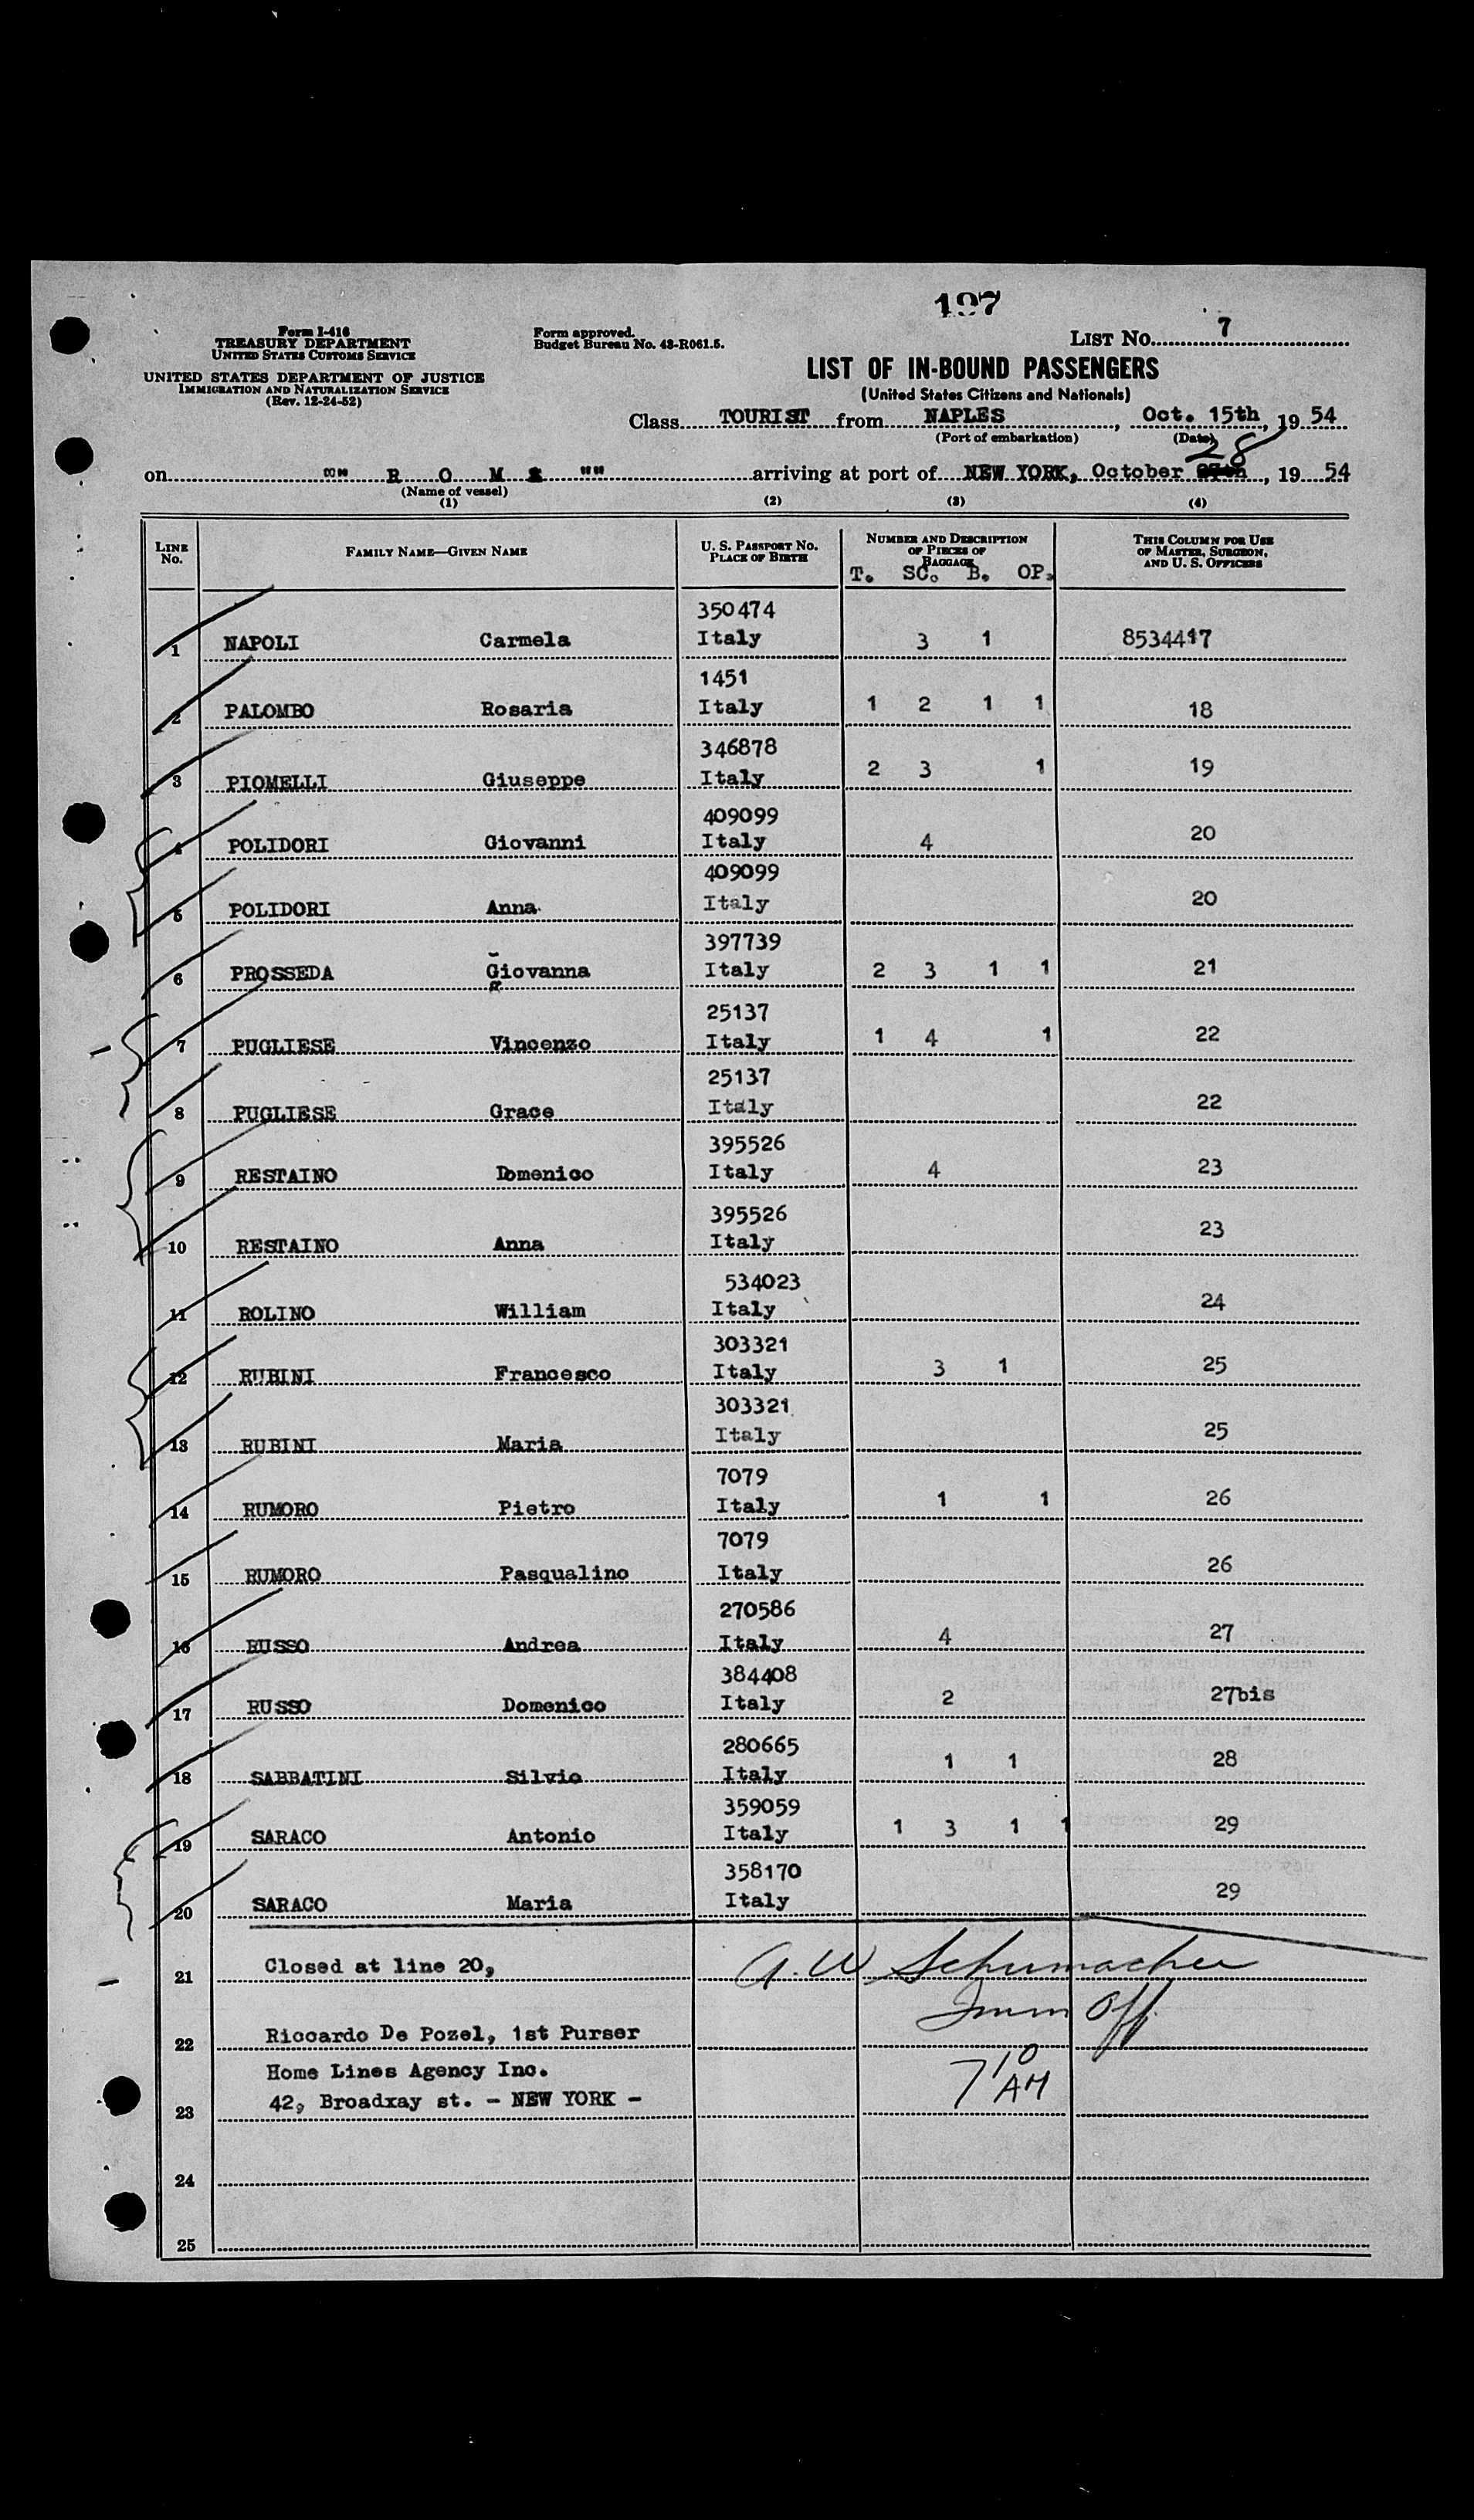 197
Form I-416
TREASURY DEPARTMENT
UNITED STATES CUSTOMS SERVICE
UNITED STATES DEPARTMENT OF JUSTICE
IMMIGRATION AND NATURALIZATION SERVICE
(Rev. 12-24-52)
Form approved.
Budget Bureau No. 43-R061.5.
LIST No. 7
LIST OF IN-BOUND PASSENGERS
(United States Citizens and Nationals)
Class TOURIST from NAPLES, Oct. 15th, 19 54
(Port of embarkation) (Date)
28
on "" R O M A "" arriving at port of NEW YORK, October 27th, 19 54
(Name of vessel)
(1) (2) (3) (4)
LINE No. FAMILY NAME—GIVEN NAME U. S. PASSPORT NO. PLACE OF BIRTH NUMBER AND DESCRIPTION OF PIECES OF BAGGAGE THIS COLUMN FOR USE OF MASTER, SURGEON, AND U. S. OFFICERS
T. SC. B. OP.
350474
1 NAPOLI Carmela Italy 3 1 8534417
1451
2 PALOMBO Rosaria Italy 1 2 1 1 18
346878
3 PIOMELLI Giuseppe Italy 2 3 1 19
409099
4 POLIDORI Giovanni Italy 4 20
409099
5 POLIDORI Anna Italy 20
397739
6 PROSSEDA Giovanna Italy 2 3 1 1 21
25137
7 PUGLIESE Vincenzo Italy 1 4 1 22
25137
8 PUGLIESE Grace Italy 22
395526
9 RESTAINO Domenico Italy 4 23
395526
10 RESTAINO Anna Italy 23
534023
11 ROLINO William Italy 24
303321
12 RUBINI Francesco Italy 3 1 25
303321
13 RUBINI Maria Italy 25
7079
14 RUMORO Pietro Italy 1 1 26
7079
15 RUMORO Pasqualino Italy 26
270586
16 RUSSO Andrea Italy 4 27
384408
17 RUSSO Domenico Italy 2 27bis
280665
18 SABBATINI Silvio Italy 1 1 28
359059
19 SARACO Antonio Italy 1 3 1 1 29
358170
20 SARACO Maria Italy 29
21 Closed at line 20, A. W Schumacher
Imm Off.
22 Riccardo De Pozel, 1st Purser
Home Lines Agency Inc. 7 10 AM
23 42, Broadxay st. - NEW YORK -
24
25